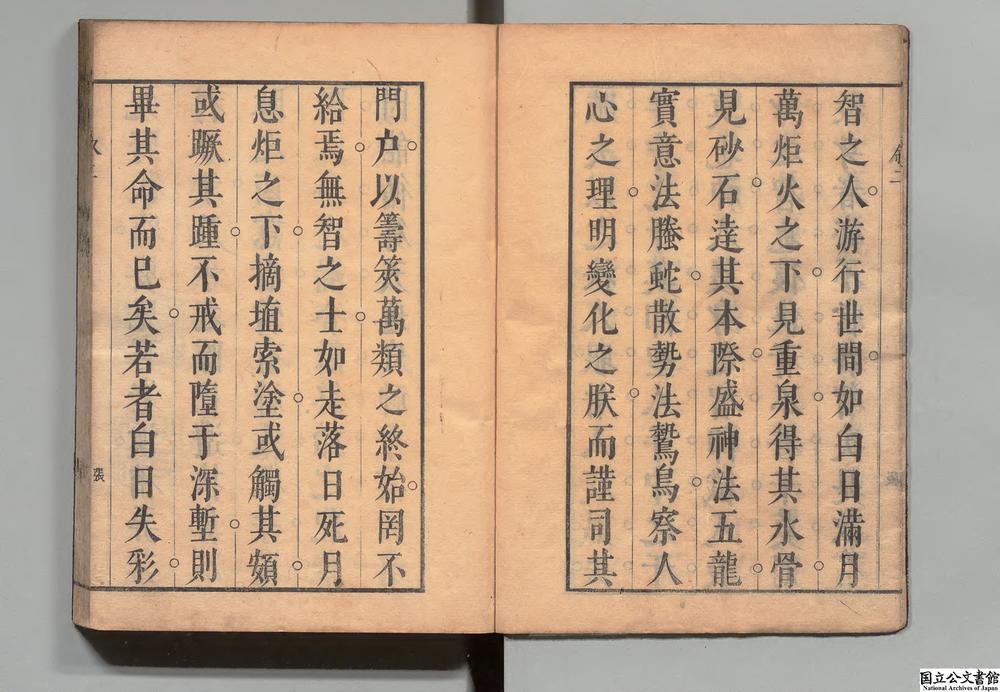 智之人游行世間如白日滿月
萬炬火之下見重泉得其水骨
見砂石達其本際盛神法五龍
實意法螣虵散勢法鷙鳥察人
心之理明變化之朕而謹司其
門户以籌筴萬類之終始罔不
給焉無智之士如走落日死月
息炬之下摘埴索塗或觸其頞
或蹶其踵不戒而墮于深塹則
畢其命而已矣若者白日失彩
張
国立公文書館
National Archives of Japan